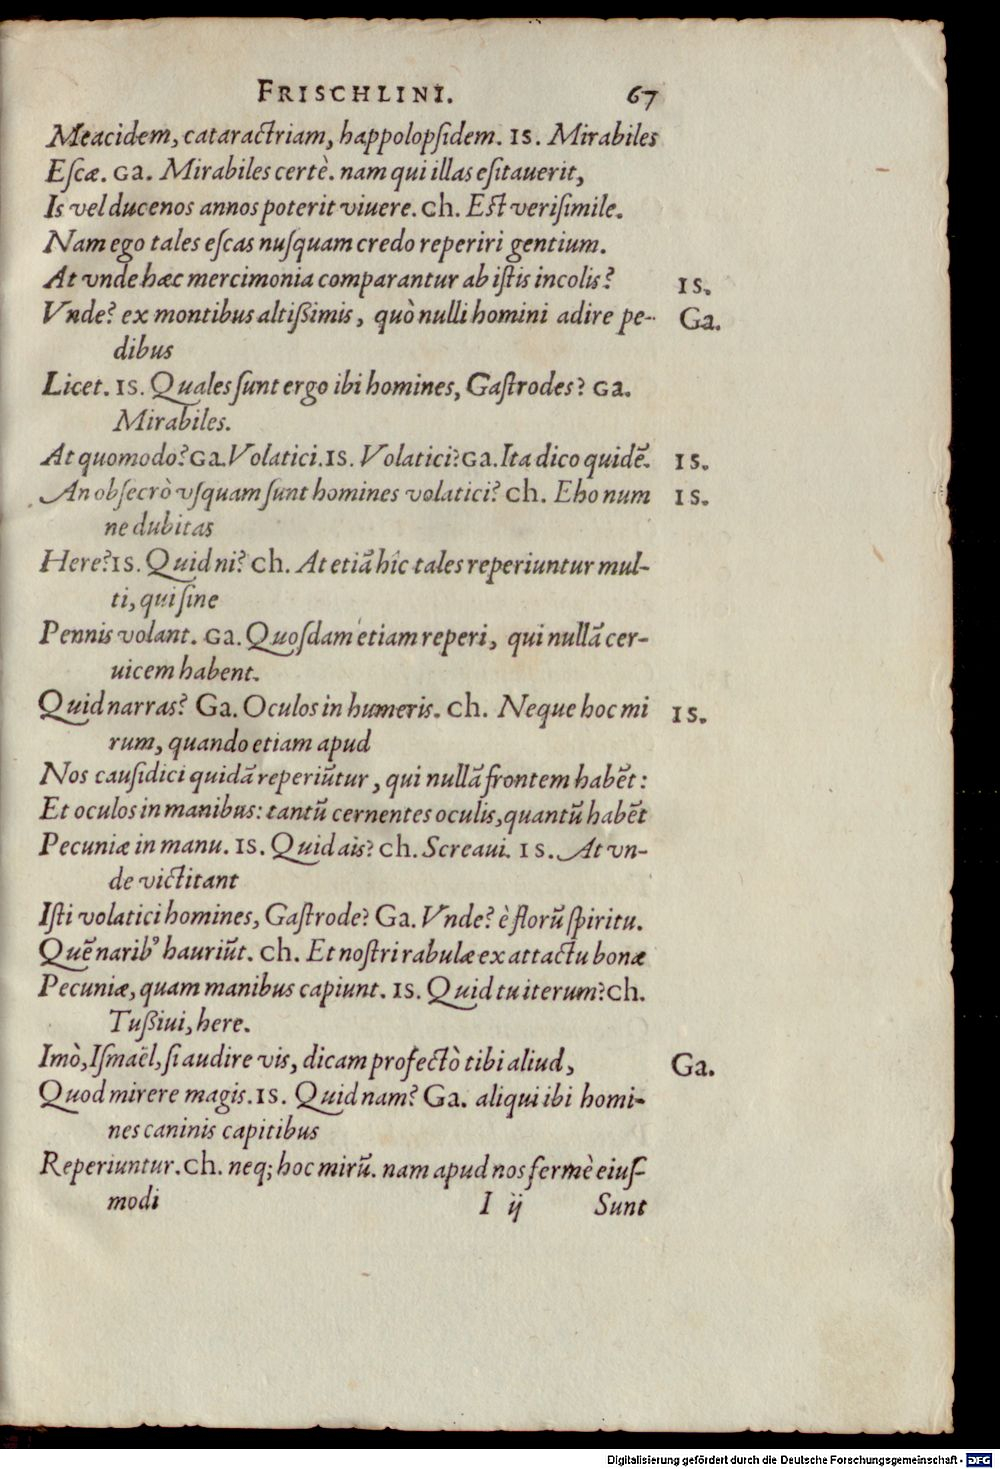 FRISCHLINI. 67
Meacidem, cataractriam, happolopſidem. IS. Mirabiles
Eſcæ. Ga. Mirabiles certè. nam qui illas eſitauerit,
Is vel ducenos annos poterit viuere. Ch. Eſt veriſimile.
Nam ego tales eſcas nuſquam credo reperiri gentium.
At vnde hæc mercimonia comparantur ab iſtis incolis? IS.
Vnde? ex montibus altißimis, quò nulli homini adire pe- Ga.
dibus
Licet. IS. Quales ſunt ergo ibi homines, Gaſtrodes? Ga.
Mirabiles.
At quomodo? Ga. Volatici. IS. Volatici? Ga. Ita dico quidẽ. IS.
An obſecrò vſquam ſunt homines volatici? Ch. Eho num IS.
ne dubitas
Here? IS. Quid ni? Ch. At etiã hîc tales reperiuntur mul-
ti, qui ſine
Pennis volant. Ga. Quoſdam etiam reperi, qui nullã cer-
uicem habent.
Quid narras? Ga. Oculos in humeris. Ch. Neque hoc mi IS.
rum, quando etiam apud
Nos cauſidici quidã reperiũtur, qui nullã frontem habẽt:
Et oculos in manibus: tantũ cernentes oculis, quantũ habẽt
Pecuniæ in manu. IS. Quid ais? Ch. Screaui. IS. At vn-
de victitant
Iſti volatici homines, Gaſtrode? Ga. Vnde? è florũ ſpiritu.
Quẽ naribꝰ hauriũt. Ch. Et noſtri rabulæ ex attactu bonæ
Pecuniæ, quam manibus capiunt. IS. Quid tu iterum? Ch.
Tußiui, here.
Imò, Iſmaël, ſi audire vis, dicam profectò tibi aliud, Ga.
Quod mirere magis. IS. Quid nam? Ga. aliqui ibi homi-
nes caninis capitibus
Reperiuntur. Ch. neq; hoc mirũ. nam apud nos fermè eiuſ-
modi I ij Sunt
Digitalisierung gefördert durch die Deutsche Forschungsgemeinschaft - DFG